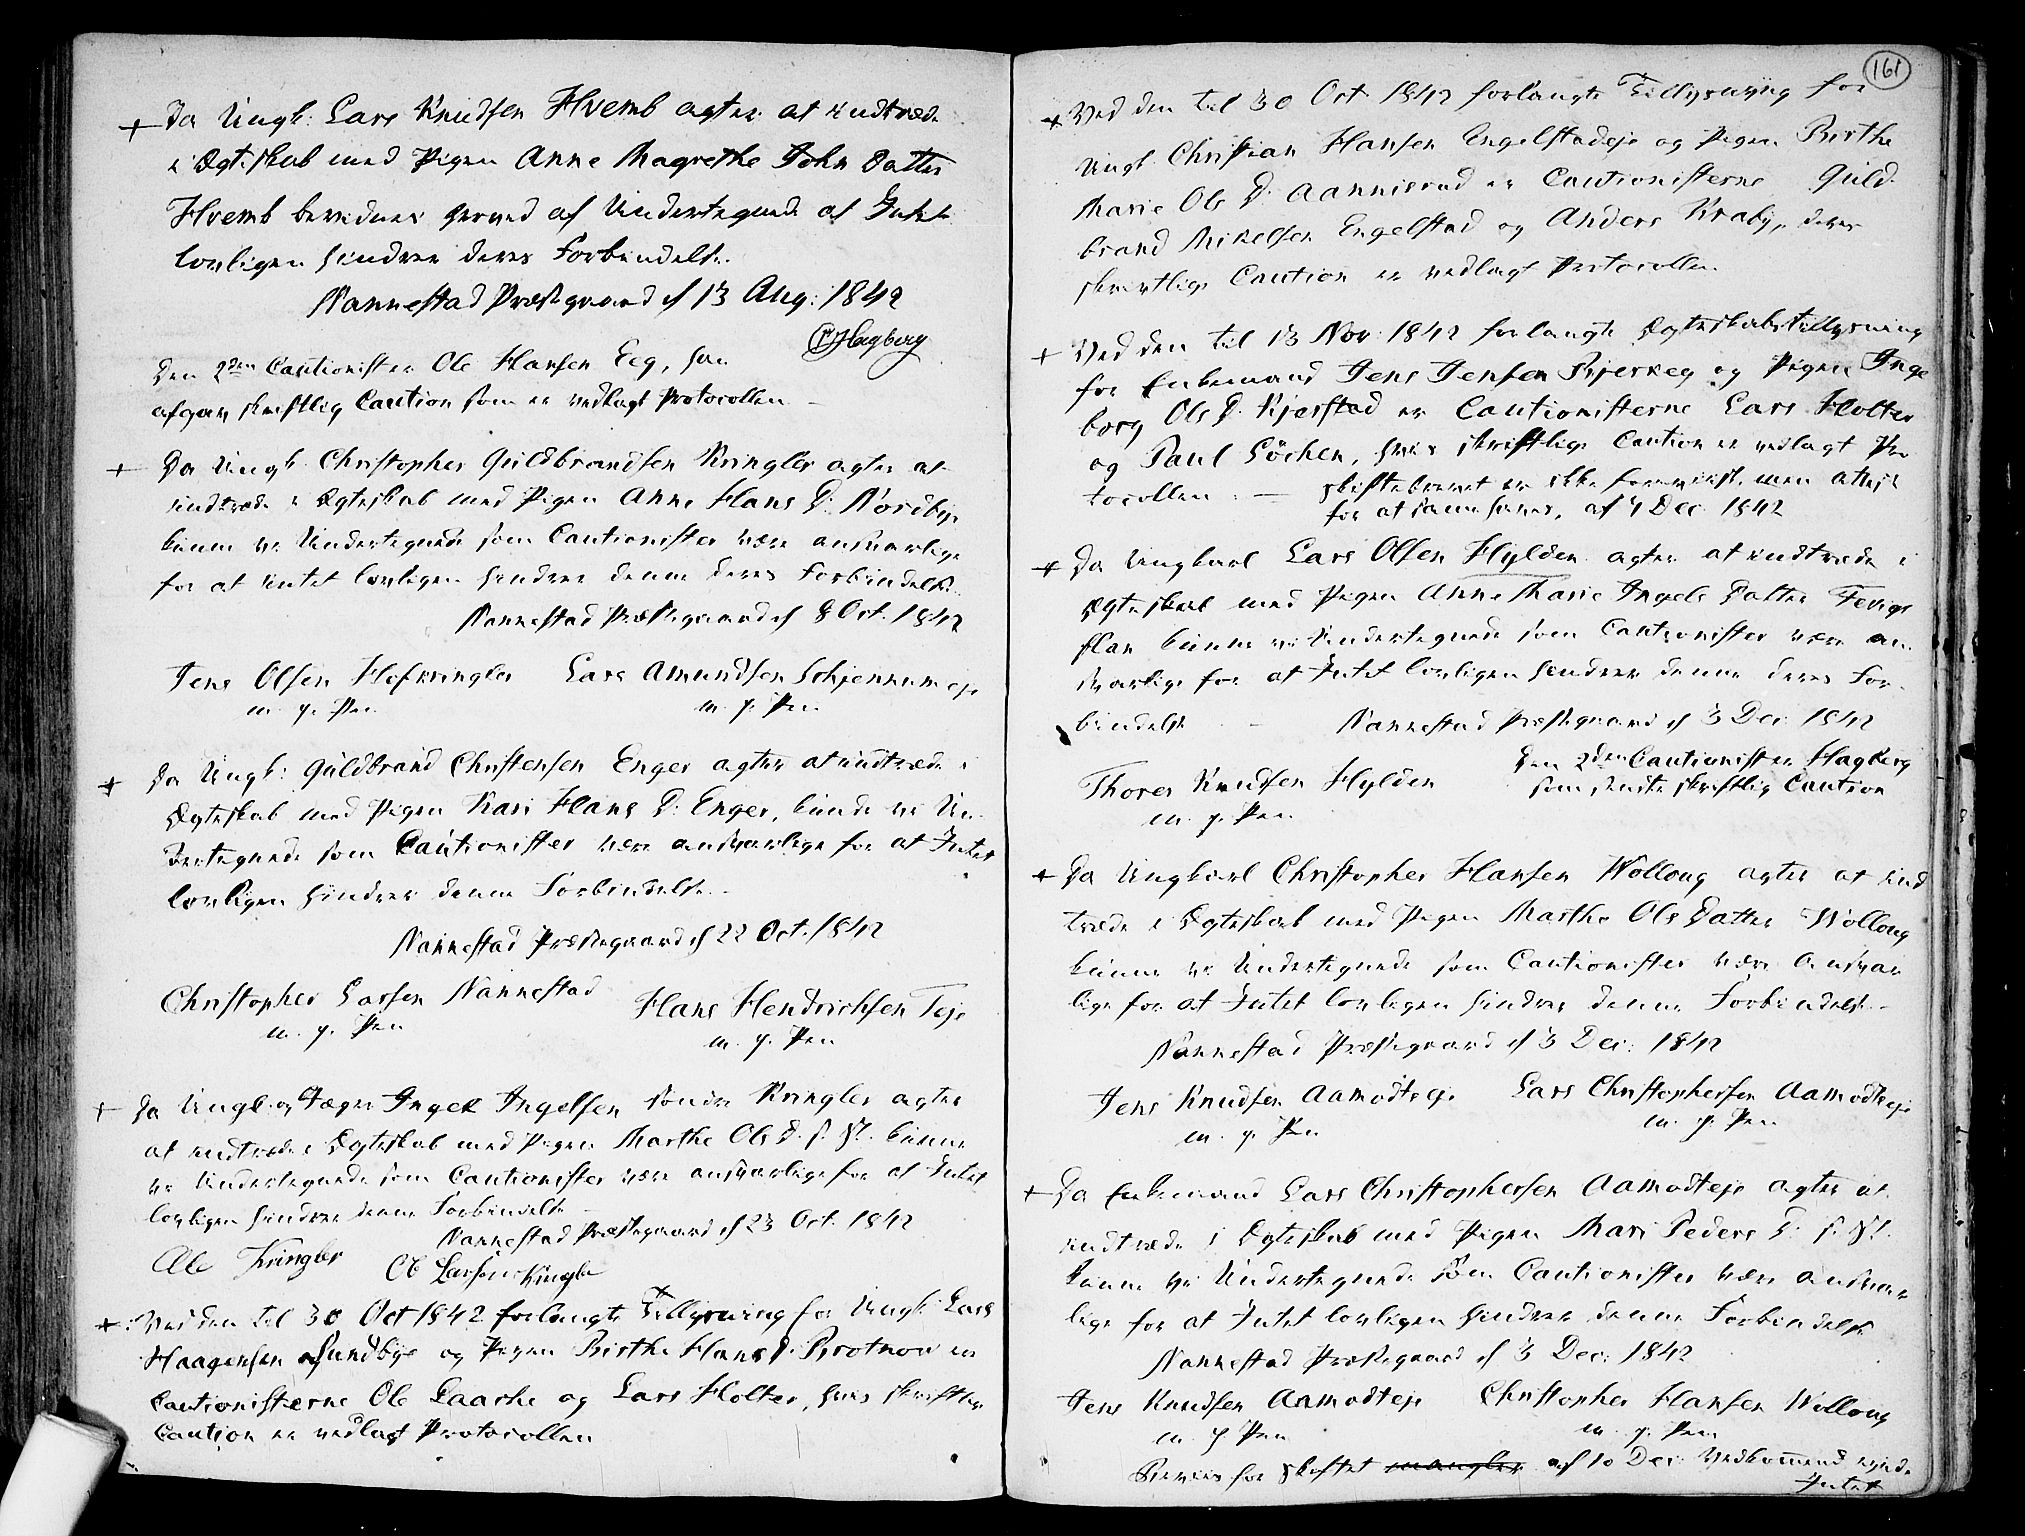 + Da Ungk: Lars Knudsen Hvemb agter at indtræde
i Ægteskab med Pigen Anne Magrethe John Datter
Hvemb bevidnes herved af Undertegnede at Intet
lovligen hindrer deres Forbindelse.
Nannestad Præstegaard d 13 Aug: 1842
Hagberg
Den 2den Cautionist er Ole Hansen Eeg, han
afgav skriftlig Caution som er vedlagt Protocollen –
+ Da Ungk Christopher Guldbrandsen Kringler agter at
indtræde i Ægteskab med Pigen Anne Hans D. Nordbye
kunne vi Undertegnede som Cautionister være ansvarlige
for at intet lovligen hindrer denne deres Forbindelse.
Nannestad Præstegaard d 8 Oct. 1842
Jens Olsen Hofkringler Lars Amundsen Schjennum eje
m. p. Pen m. p. Pen
+ Da Ungk: Guldbrand Christensen Enger agter at indtræde i
Ægteskab med Pigen Kari Hans D: Enger, kunde vi Un-
dertegnede som Cautionister være ansvarlige for at Intet
lovligen hindrer denne Forbindelse. –
Nannestad Præstegaard d 22 Oct. 1842
Christopher Larsen Nannestad Hans Hendrichsen Teje
m. p. Pen m. p. Pen
+ Da Ungk. og Inger Ingelsen søndre Kringler agter
at indtræde i Ægteskab med Pigen Marthe Ols D. s. St. kunne
vi Undertegnede som Cautionister være ansvarlige for at Intet
lovligen hindrer denne Forbindelse –
Nannestad Præstegaard d 23 Oct. 1842
Ole Kringler Ole Larsen Kringler
+ Ved den til 30 Oct 1842 forlangte Tillysning for Ungk: Lars
Haagensen Sundbye og Pigen Birthe Hans D. Brotnou er
Cautionisterne Ole Laache og Lars Holter, hvis skriftlige
Caution er vedlagt Protocollen
161
+ Ved den til 30 Oct 1842 forlangte Tillysning for
Ungk. Christian Hansen Engelstadeje og Pigen Birthe
Marie Ols D. Aannerud er Cautionisterne Guld-
brand Mikelsen Engelstad og Anders Kraby, deres
skriftlige Caution er vedlagt Protocollen
+ Ved den til 13 Nov: 1842 forlangte Ægteskabstillysning
for Enkemand Jens Jensen Bjerkeg og Pigen Inge
borg Ols D. Kjerstad er Cautionisterne Lars Holter
og Paul Löchen, hvis skriftlige Caution er vedlagt Pro
tocollen. — Skiftebrevet er ikke foreviist, men Attest
for at samme haves, af 4 Dec 1842
+ Da Ungkarl Lars Olsen Hylden agter at indtræde i
Ægteskab med Pigen Anne Marie Ingels Datter
flan kunne vi Undertegnede som Cautionister være an-
svarlige for at Intet lovligen hindrer denne deres For-
bindelse – Nannestad Præstegaard d 3 Dec: 1842
Den 2den Cautionist er Hagberg
Thorer Knudsen Hylden som sendte skriftlig Caution
m. p. Pen
+ Da Ungkarl Christopher Hansen Wollong agter at ind
træde i Ægteskab med Pigen Marthe Ols Datter Wollong
kunne vi Undertegnede som Cautionister være Ansvar
lige for at Intet lovligen hindrer denne Forbindelse –
Nannestad Præstegaard d 3 Dec: 1842
Jens Knudsen Aamodteje Lars Christophersen Aamodteje
m. p. Pen m. p. Pen
+ Da Enkemand Lars Christophersen Aamodteje agter at
indtræde i Ægteskab med Pigen Mari Peders D. s. St.
kunne vi Undertegnede som Cautionister være ansvar
lige for at Intet lovligen hindrer denne Forbindelse
Nannestad Præstegaard d 3 Dec: 1842
Jens Knudsen Aamodteje Christopher Hansen Wollong
m. p. Pen m. p. Pen
Beviis for Skiftet mangler af 10 Dec: Vedkommende
Intet